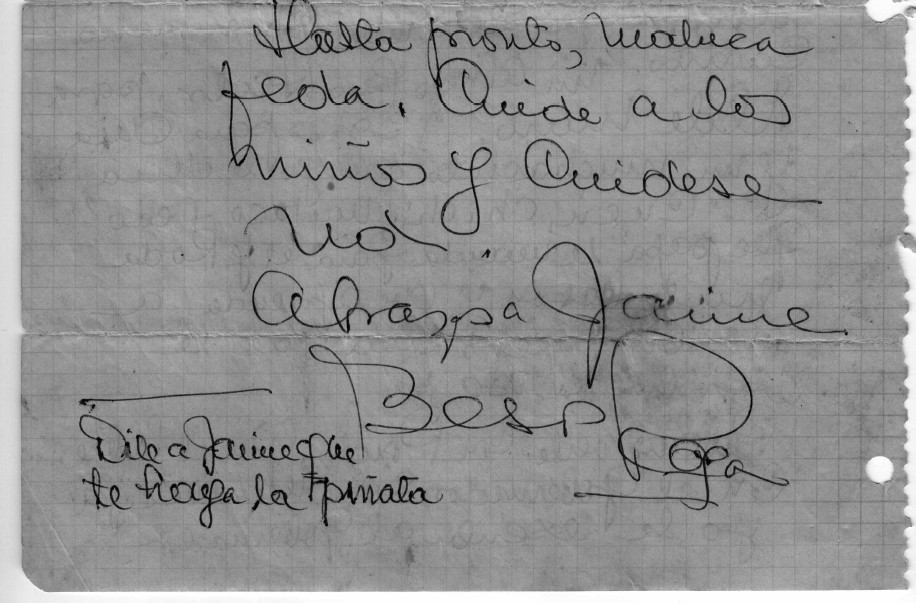 Hasta pronto,
feda. Cuide a los
niños y Cuidese
Ud
Abraza Jaime
Beso
Dile a Jaime que
te haga la piñata